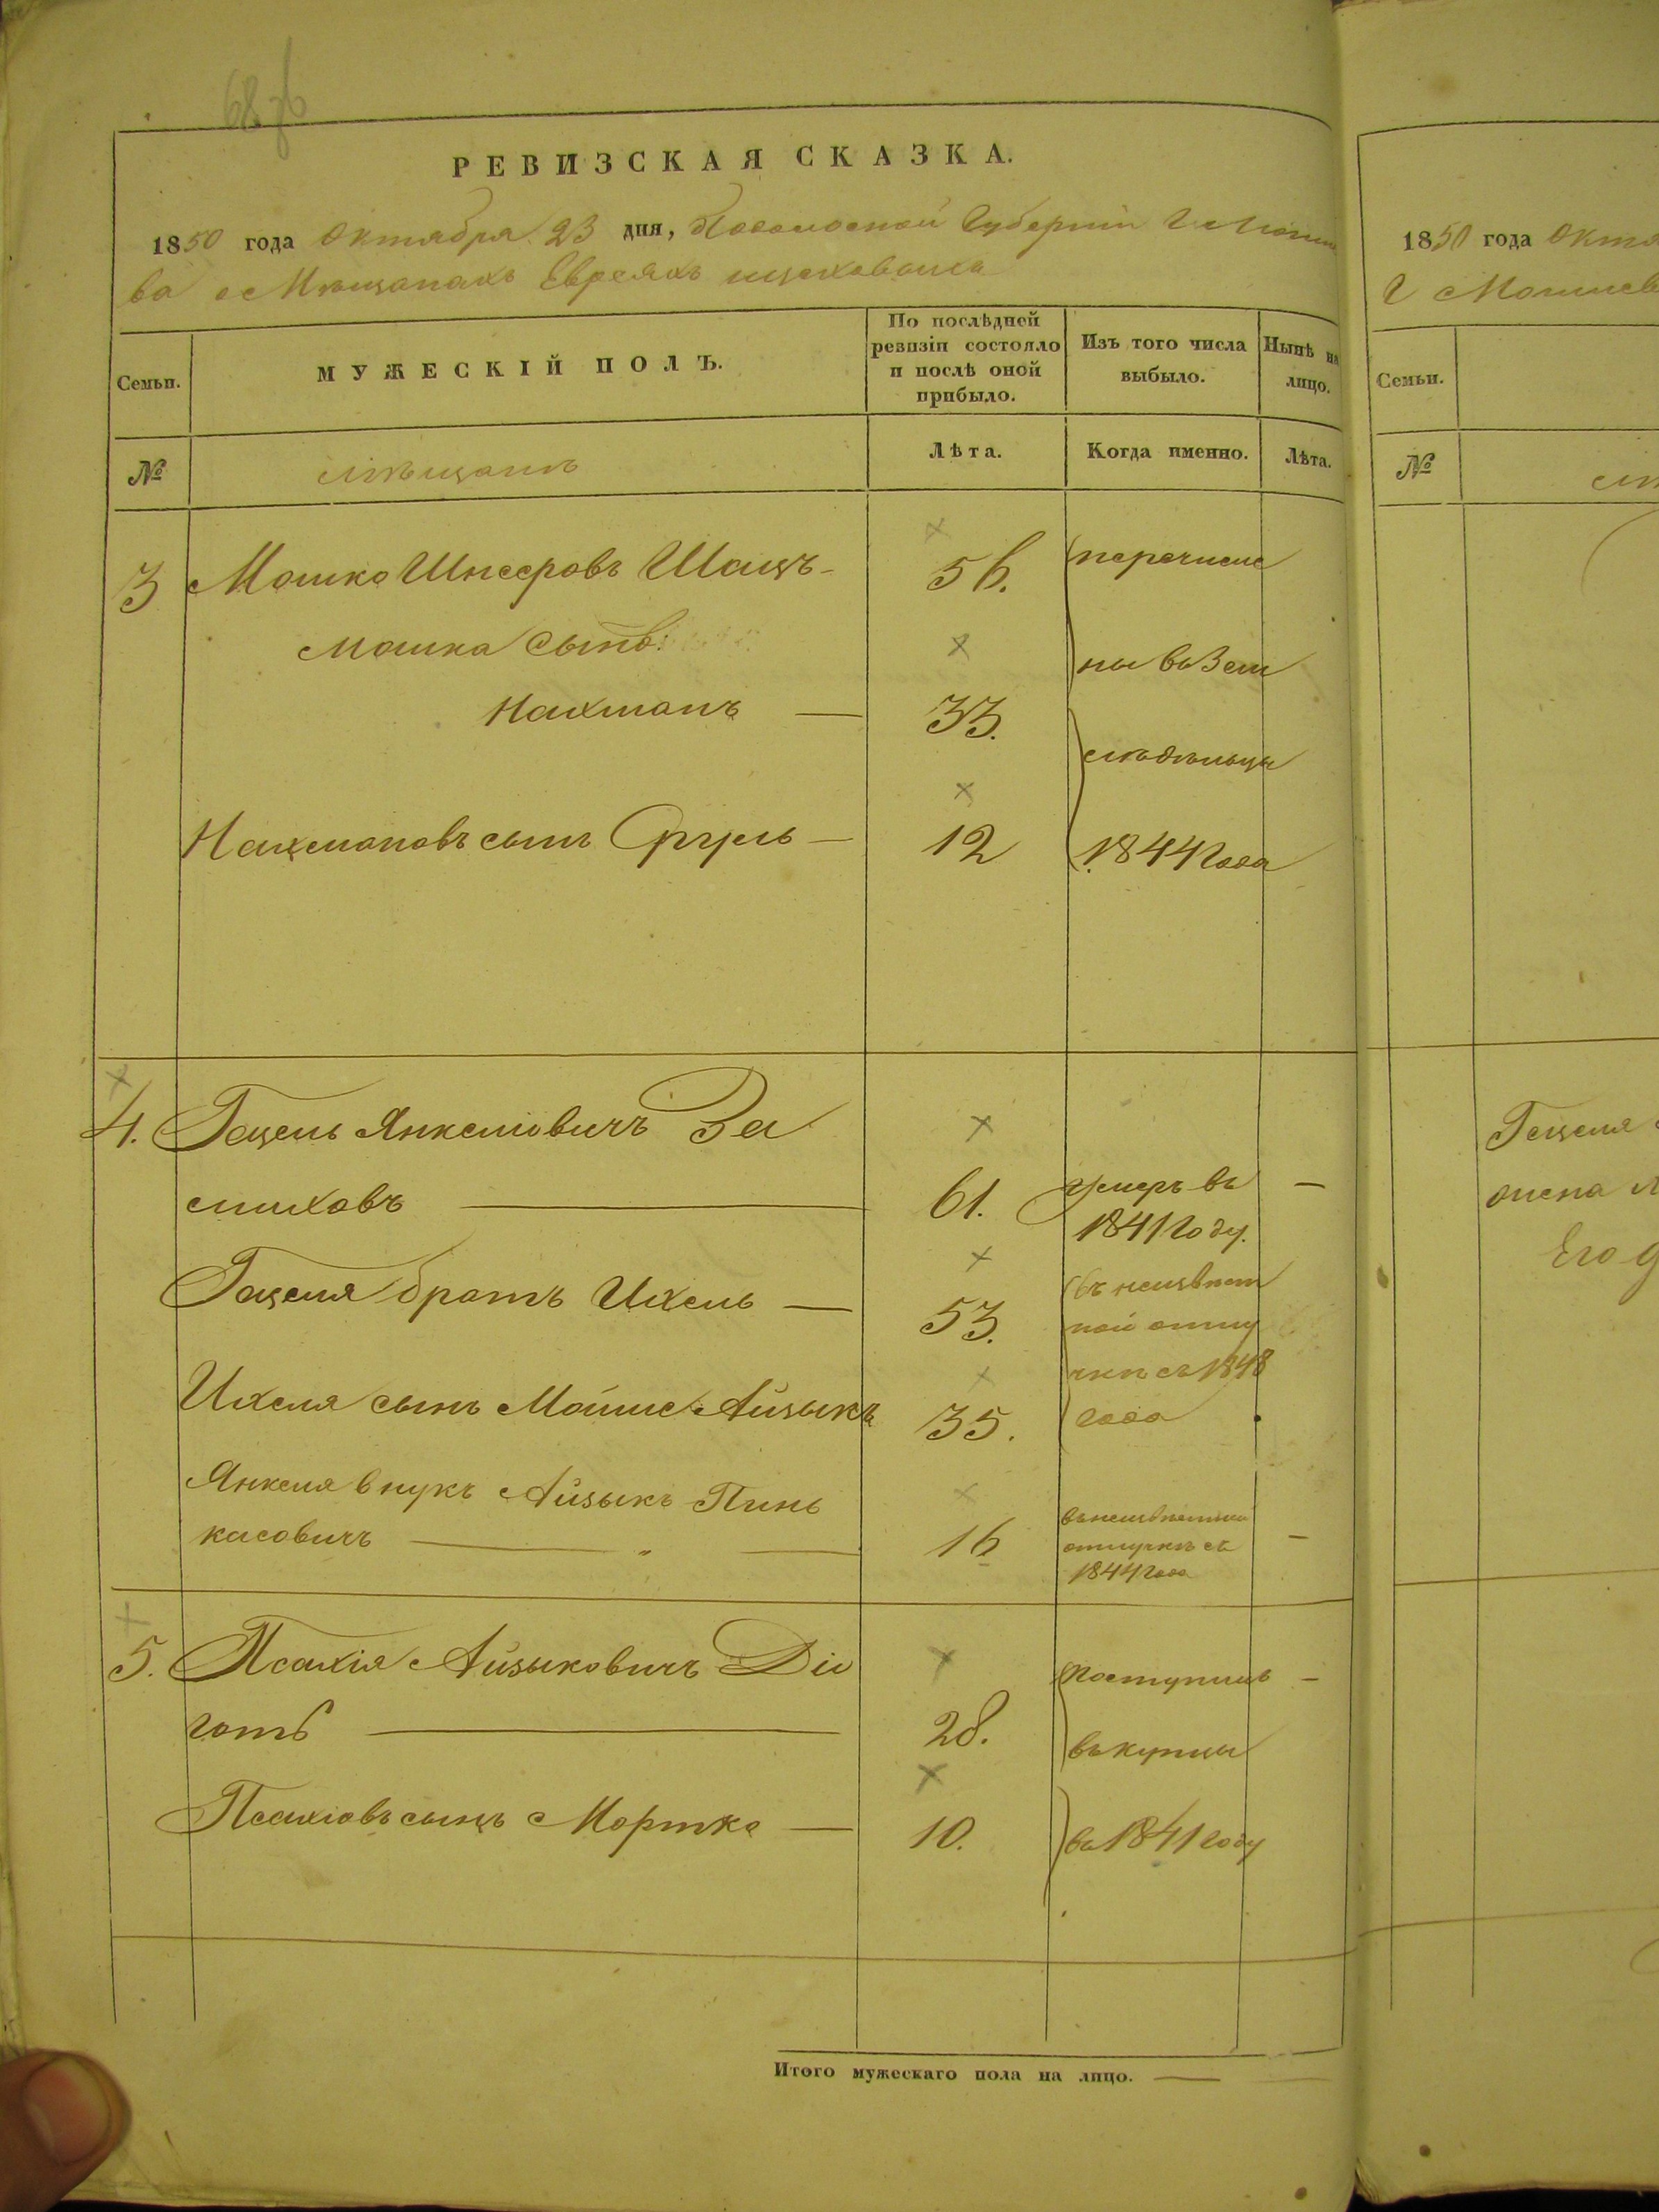 РЕВИЗСКАЯ СКАЗКА.
1850 года Октября 23 дня, Подольской Губерніи Г Могиле
ва о Мѣщанахъ Евреяхъ
Семьи.
МУЖЕСКІЙ ПОЛЪ.
По послѣдней ревизіи состояло и послѣ оной прибыло.
Изъ того числа выбыло.
Нынѣ на лицо.
№
мѣщанъ
Лѣта.
Когда именно.
Лѣта.
3 Мошко Шнееровъ Шацъ 56. перечисле
Мошка Сынъ: ны въ Зем
Нахманъ — 33.
ледѣльцы
Нахмановъ сынъ Сруль — 12 1844 года
4. Гецель Янкеліовичъ За
смиховъ — 61. умеръ въ —
1841 году.
Гецеля братъ Ихель — 53. въ неизвѣст
ной отлу
чкѣ съ 1848
Ихеля сынъ Мойше Айзыкъ 35. года
Янкеля внукъ Айзыкъ Пинь
касовичъ — „ — 16 въ неизвѣстной
отлучкѣ съ —
1844 года
5. Псахія Айзыковичъ Дін
готъ — 28. поступилъ —
въ купцы
Псахіовъ сынъ Мортко — 10. въ 1841 году
Итого мужескаго пола на лицо. —
1850 года Октя
Г Могилев
Семьи.
№
мѣ
Гецеля
жена
Его д